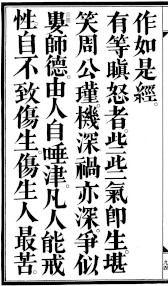 作如是經
有等瞋怒者此此二氣卽生堪
笑周公瑾機深禍亦深爭似
婁師德由人自唾津凡人能戒
性自不致傷生傷生人最苦